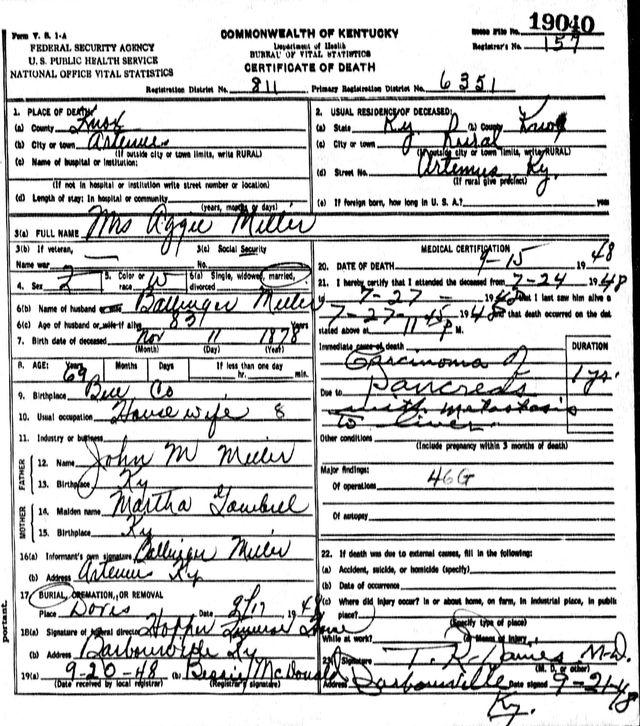 Form V. S. 1-A
FEDERAL SECURITY AGENCY
U. S. PUBLIC HEALTH SERVICE
NATIONAL OFFICE VITAL STATISTICS
COMMONWEALTH OF KENTUCKY
Department of Health
BUREAU OF VITAL STATISTICS
CERTIFICATE OF DEATH
File No. 19040
Registrar's No. 157
Registration District No. 811 Primary Registration District No. 6351
1. PLACE OF DEATH:
(a) County Knox
(b) City or town Artemus
(If outside city or town limits, write RURAL)
(c) Name of hospital or institution:
(If not in hospital or institution write street number or location)
(d) Length of stay: In hospital or community
(years, months or days)
2. USUAL RESIDENCE OF DECEASED:
(a) State Ky. (b) County Knox
(c) City or town Rural
(If outside city or town limits, write RURAL)
(d) Street No. Artemus Ky.
(If rural give precinct)
(e) If foreign born, how long in U. S. A.? years
3(a) FULL NAME Mrs Aggie Miller
3(b) If veteran, Name war
3(c) Social Security No.
4. Sex 5. Color or race W 6(a) Single, widowed, married, divorced
6(b) Name of husband or wife Ballinger Miller
6(c) Age of husband or wife if alive 83 Years
7. Birth date of deceased Nov 11 1878
(Month) (Day) (Year)
8. AGE: Years 69 Months Days If less than one day
hr. min.
9. Birthplace Bell Co
10. Usual occupation House wife 8
11. Industry or business
FATHER
12. Name John M Miller
13. Birthplace Ky
MOTHER
14. Maiden name Martha
15. Birthplace Ky
16(a) Informant's own signature Ballinger Miller
(b) Address Artemus Ky
17. BURIAL, CREMATION, OR REMOVAL
Place Date 9/17 1948
18(a) Signature of funeral director Hopper Funeral Home
(b) Address Barbourville Ky
19(a) 9-20-48 (b) Bessie McDonald
(Date received by local registrar) (Registrar's signature)
MEDICAL CERTIFICATION
20. DATE OF DEATH 9-15 1948
21. I hereby certify that I attended the deceased from 7-24 1948
7-27 1948 that I last saw him alive o
7-27 1948 and that death occurred on the dat
stated above at P M.
Immediate cause of death DURATION
Carcinoma of 1 yr.
Due to Pancreas
with metastasis
to liver.
Other conditions
(Include pregnancy within 3 months of death)
Major findings:
Of operations 46G
Of autopsy
22. If death was due to external causes, fill in the following:
(a) Accident, suicide, or homicide (specify)
(b) Date of occurrence
(c) Where did injury occur? In or about home, on farm, in industrial place, in public
place?
(Specify type of place)
While at work? (e) Means of injury
23. Signature T. R. Davies M.D.
(M. D. or other)
Address Barbourville Date signed 9-21-48
Ky.
portant.